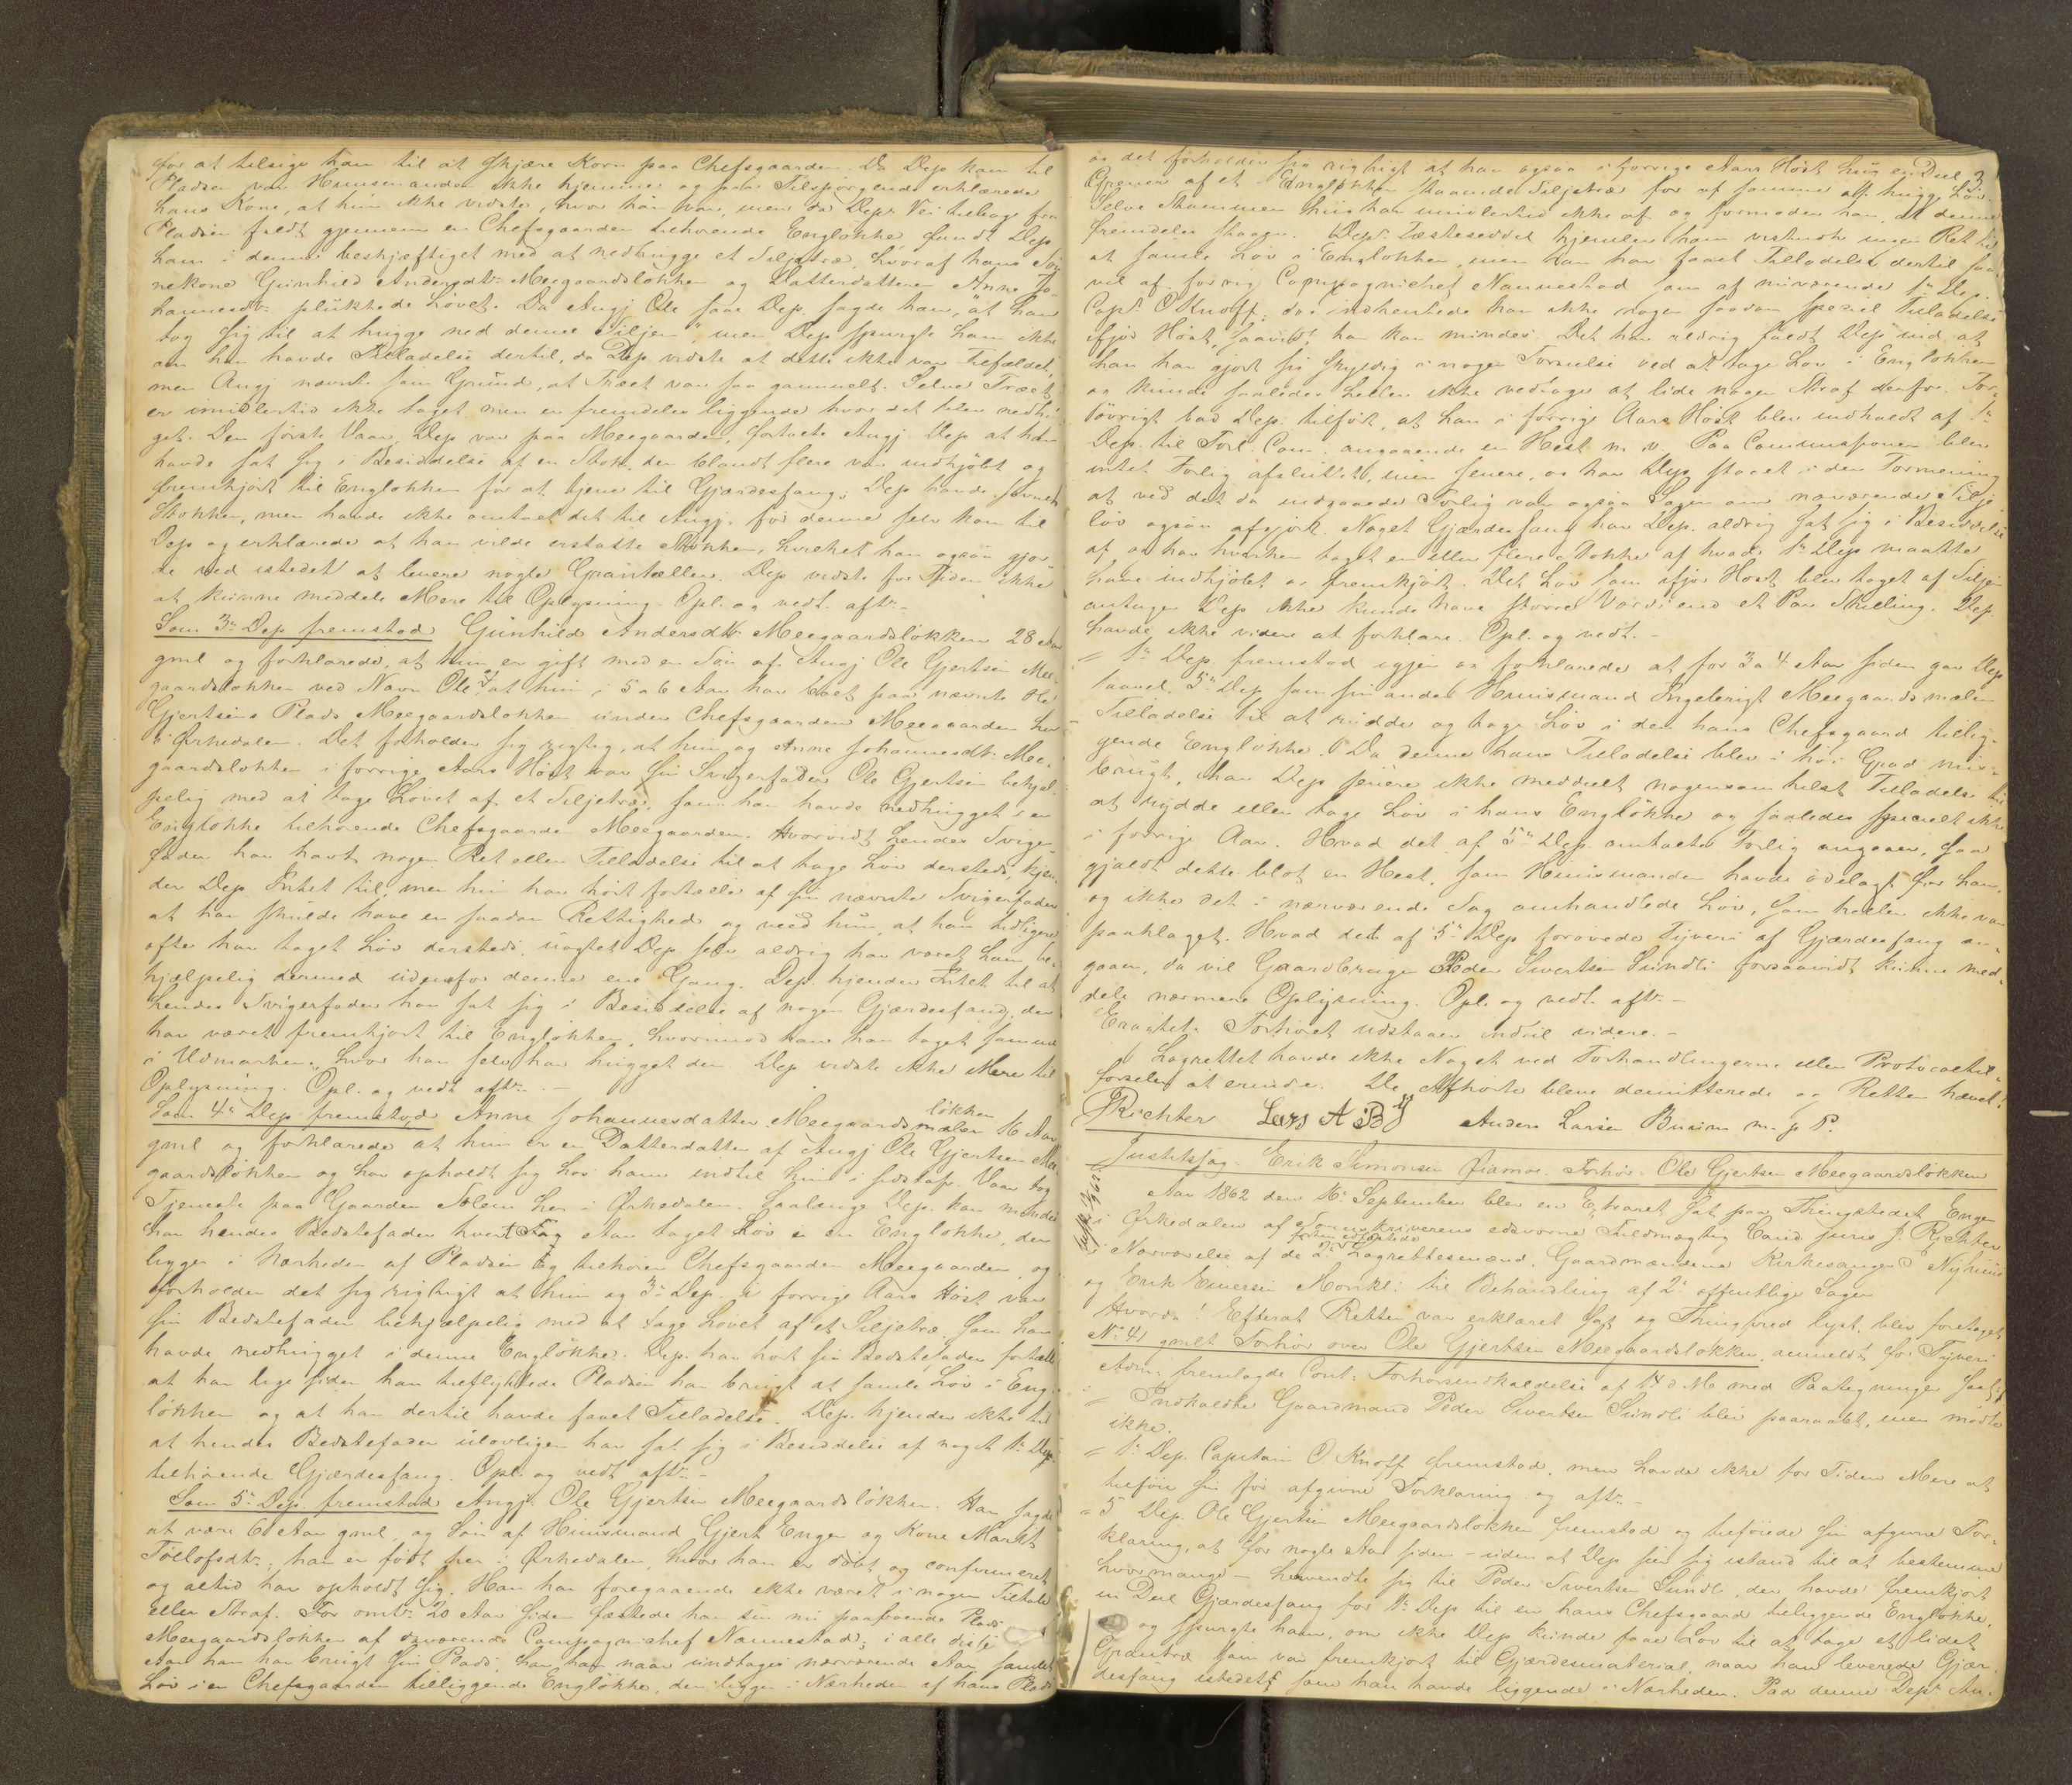 for at tilsige ham til at skjære Korn paa Chefsgaarden. Da Dep kom til
Pladsen var Huusmanden ikke hjemme og paa Tilspørgende erklærede
hans Kone, at hun ikke vidste, hvor han var, men da Deps Vei tilbage fra
Pladsen faldt gjennem en Chefsgaarden tilhørende Engløkke fandt Dep.
ham i denne beskjæftiget med at nedhugge et Siljetræ, hvoraf hans Søn-
nekone Gunhild Andersdtr Meegaardsløkken og Datterdatteren Anne Jo-
hannesdtr plukkede Løvet. Da Angj Ole saae Dep. sagde han, "at han
tog sig til at hugge ned denne Siljen" men Dep spurgte ham ikke
om han havde Tilladelse dertil, da Dep vidste at dette ikke var Tilfældet,
men Angj nævnte som Grund, at Træet var saa gammelt. Selve Træet
er imidlertid ikke taget men er fremdeles liggende hvor det blev nedhug-
get. Den første Vaar Dep var paa Meegaarden, fortalte Angj Dep at han
havde sat sig i Besiddelse af en Stok, der blandt flere var indkjøbt og
fremkjørt til Engløkken for at tjene til Gjærdesfang; Dep havde savnet
Stokken, men havde ikke omtalet det til Angj. før denne selv kom til
Dep og erklærede at han vilde erstatte Stokken, hvilket han ogsaa gjor-
de ved istedet at levere nogle Grantæller. Dep vidste for Tiden ikke
at kunne meddele Mere til Oplysning. Opl. og vedt. aftr. -
Som 3de Dep fremstod Gunhild Andersdtr Meegaardsløkken 28 Aar
gml og forklarede, at hun er gift med en Søn af Angj Ole Gjertsen Mee-
gaardsløkken ved Navn Ole, at hun i 5 a 6 Aar har boet paa nævnte Ole
Gjertsens Plads Meegaardsløkken under Chefsgaarden Meegaarden her
i Ørkedalen. Det forholder sig rigtig, at hun og Anne Johannesdtr Mee-
gaardsløkken i forrige Aars Høst var sin Svigerfader Ole Gjertsen behjæl-
pelig med at tage Løvet af et Siljetræ, som han havde nedhugget i en
Engløkke tilhørende Chefsgaarden Meegaarden. Hvorvidt hendes Sviger-
fader har havt nogen Ret eller Tilladelse til at tage Løv dersteds, kjen-
der Dep Intet til, men hun har hørt fortælle af sin nævnte Svigerfader
at han skulde have en saadan Rettighed og veed hun, at han tidligere
ofte har taget Løv dersteds uagtet Dep selv aldrig har været ham be-
hjælpelig dermed udenfor denne ene Gang. Dep. kjender Intet til at
hendes Svigerfader har sat sig i Besiddelse af nogen Gjærdesfang, der
har været fremkjørt til Engløkken, hvorimod han har taget samme
i Udmarken, hvor han selv har hugget den. Dep vidste ikke Mere til
Oplysning. Opl. og vedt aftr. -
løkken
Som 4de Dep fremstod Anne Johannesdatter Meegaardsmælen 16 Aar
gml og forklarede at hun er en Datterdatter af Angj Ole Gjertsen Mee-
gaardsløkken og har opholdt sig hos ham indtil hun i sidstafv. Vaar tog
Tjeneste paa Gaarden Solem her i Ørkedalen. Saalænge Dep. kan mindes
har hendes Bedstefader hvert Aar taget Løv i en Engløkke, der
ligger i Nærheden af Pladsen og tilhører Chefsgaarden Meegaarden, og
forholder det sig rigtigt at hun og 3de Dep. i forrige Aars Høst var
sin Bedstefader behjælpelig med at tage Løvet af et Siljetræ, som han
havde nedhugget i denne Engløkke. Dep. har hørt sin Bedstefader fortælle
at han lige siden han tilflyttede Pladsen har brugt at samle Løv i Eng-
løkken og at han dertil havde faaet Tilladelse. Dep. kjender ikke til
at hendes Bedstefader ulovligen har sat sig i Besiddelse af noget 1ste Dep
tilhørende Gjærdesfang. Opl. og vedt aftr. -
Som 5te Dep. fremstod Angj. Ole Gjertsen Meegaardsløkken. Han sagde
at være 61 Aar gml, og Søn af Huusmand Gjert Engen og Kone Marit
Tollofsdtr; han er født her i Ørkedalen, hvor han er døbt og confirmeret
og altid har opholdt sig. Han har foregaaende ikke været i nogen Tiltale
eller Straf. For omtr. 20 Aar siden fæstede han sin nu paaboende Plads
Meegaardsløkken af daværende Compagnichef Nannestad; i alle disse
Aar han har brugt sin Plads, har han naar undtages nærværende Aar samlet
Løv i en Chefsgaarden tilliggende Engløkke, der ligger i Nærheden af hans Plads
3
og det forholder sig rigtigt at han ogsaa i forrige Aars Høst hug en Deel
Grener af et i Engløkken staaende Siljetræ for af samme at hugge Løv.
Selve Stammen hug han imidlertid ikke af og formoder han, at denne
fremdeles staaer. Deps Fæsteseddel hjemler ham vistnok ingen Ret til
at samle Løv i Engløkken, men han har faaet Tilladelse dertil saa-
vel af forrige Compagnichef Nannestad som af nuværende 1ste Dep.
Capt. O Knoff; dog indhentede han ikke nogen saadan speciel Tilladelse
ifjor Høst, saavidt han kan mindes. Det har aldrig faldt Dep ind, at
han har gjort sig skyldig i nogen Forseelse ved at tage Løv i Engløkken
og kunde saaledes heller ikke vedtage at lide nogen Straf derfor. For-
øvrigt bad Dep. tilført, at han i forrige Aars Høst blev indkaldt af 1ste
Dep. til Forl. Com. angaaende en Hest m. v. Paa Commissionen blev
intet Forlig afsluttet, men senere, og har Dep staaet i den Formening
at ved det da indgaaede Forlig var ogsaa Sagen om nærværende Silje-
løv ogsaa afgjort. Noget Gjærdesfang har Dep. aldrig sat sig i Besiddelse
af og har hverken taget en eller flere Stokke af hvad 1ste Dep maatte
have indkjøbt og fremkjørt. Det Løv som ifjor Høst blev taget af Siljen
antager Dep ikke kunde have større Værdi end et Par Skilling. Dep.
havde ikke videre at forklare. Opl. og vedt.
= 1ste Dep. fremstod igjen og forklarede at for 3 a 4 Aar siden gav Dep
saavel 5te Dep som sin anden Huusmand Ingebrigt Meegaardsmælen
Tilladelse til at rydde og tage Løv i den hans Chefsgaard tillig-
gende Engløkke. Da denne hans Tilladelse blev i høi Grad mis-
brugt, har Dep senere ikke meddeelt nogensomhelst Tilladelse til
at rydde eller tage Løv i hans Engløkke og saaledes specielt ikke
i forrige Aar. Hvad det af 5te Dep. omtalte Forlig angaaer, saa
gjaldt dette blot en Hest, som Huusmanden havde ødelagt for ham,
og ikke det i nærværende Sag omhandlede Løv, som heller ikke var
paaklaget. Hvad det af 5te Dep forøvede Tyveri af Gjærdesfang an-
gaaer, da vil Gaardbruger Peder Sivertsen Sundli forsaavidt kunne med-
dele nærmere Oplysning. Opl. og vedt. aftr. -
Eragtet: Forhøret udstaaer indtil videre. -
Lagrettet havde ikke Noget ved Forhandlingerne eller Protocoltil-
førselen at erindre. De Afhørte bleve demitterede og Retten hævet.
J Richter Lars A BJ Anders Larsen m. p P.
Justitssag. Erik Simonsen Forhør. Ole Gjertsen Meegaardsløkken
Aar 1862 den 16de September blev en Extraret sat paa Thingstedet Engen
i Ørkedalen af Sorenskriverens edsvorne Fuldmægtig Cand juris J. Richter
i Nærværelse af de 2de Lagrettesmænd, Gaardmændene Kirkesanger Nyhuus
og Erik til Behandling af 2de offentlige Sager
Hvorda! Efterat Retten var erklæret sat og Thingfred lyst, blev foretaget
No 4, gmlt Forhør over Ole Gjertsen Meegaardsløkken, anmeldt for Tyveri
Adm. fremlagde Cont. Forhørsindkaldelse af 14 d. M. med Paategninger saal.
= Indkaldte Gaardmand Peder Sivertsen Sundli blev paaraabt, men mødte
ikke.
= 1ste Dep. Capitain O Knoff fremstod, men havde ikke for Tiden Mere at
tilføie sin før afgivne Forklaring og aftr. -
= 5te Dep. Ole Gjertsen Meegaardsløkken fremstod og tilføiede sin afgivne For-
klaring, at for nogle Aar siden - uden at Dep seer sig istand til at bestemme
hvormange - henvendte sig til Peder Sivertsen Sundli, der havde fremkjørt
en Deel Gjærdesfang for 1ste Dep til en hans Chefsgaard tilliggende Engløkke,
og spurgte ham, om ikke Dep kunde faae Lov til at tage et lidet
Grantræ som var fremkjørt til Gjærdesmaterial, naar han leverede Gjær-
desfang istedet, som han havde liggende i Nærheden. Paa denne Deps An-